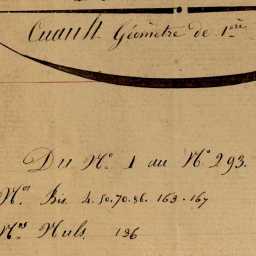 Cuault Géomètre de 1ère
Du N° 1 au N° 293.
Nos Bis 4.50.70.86. 163.167
Nos Nuls. 136